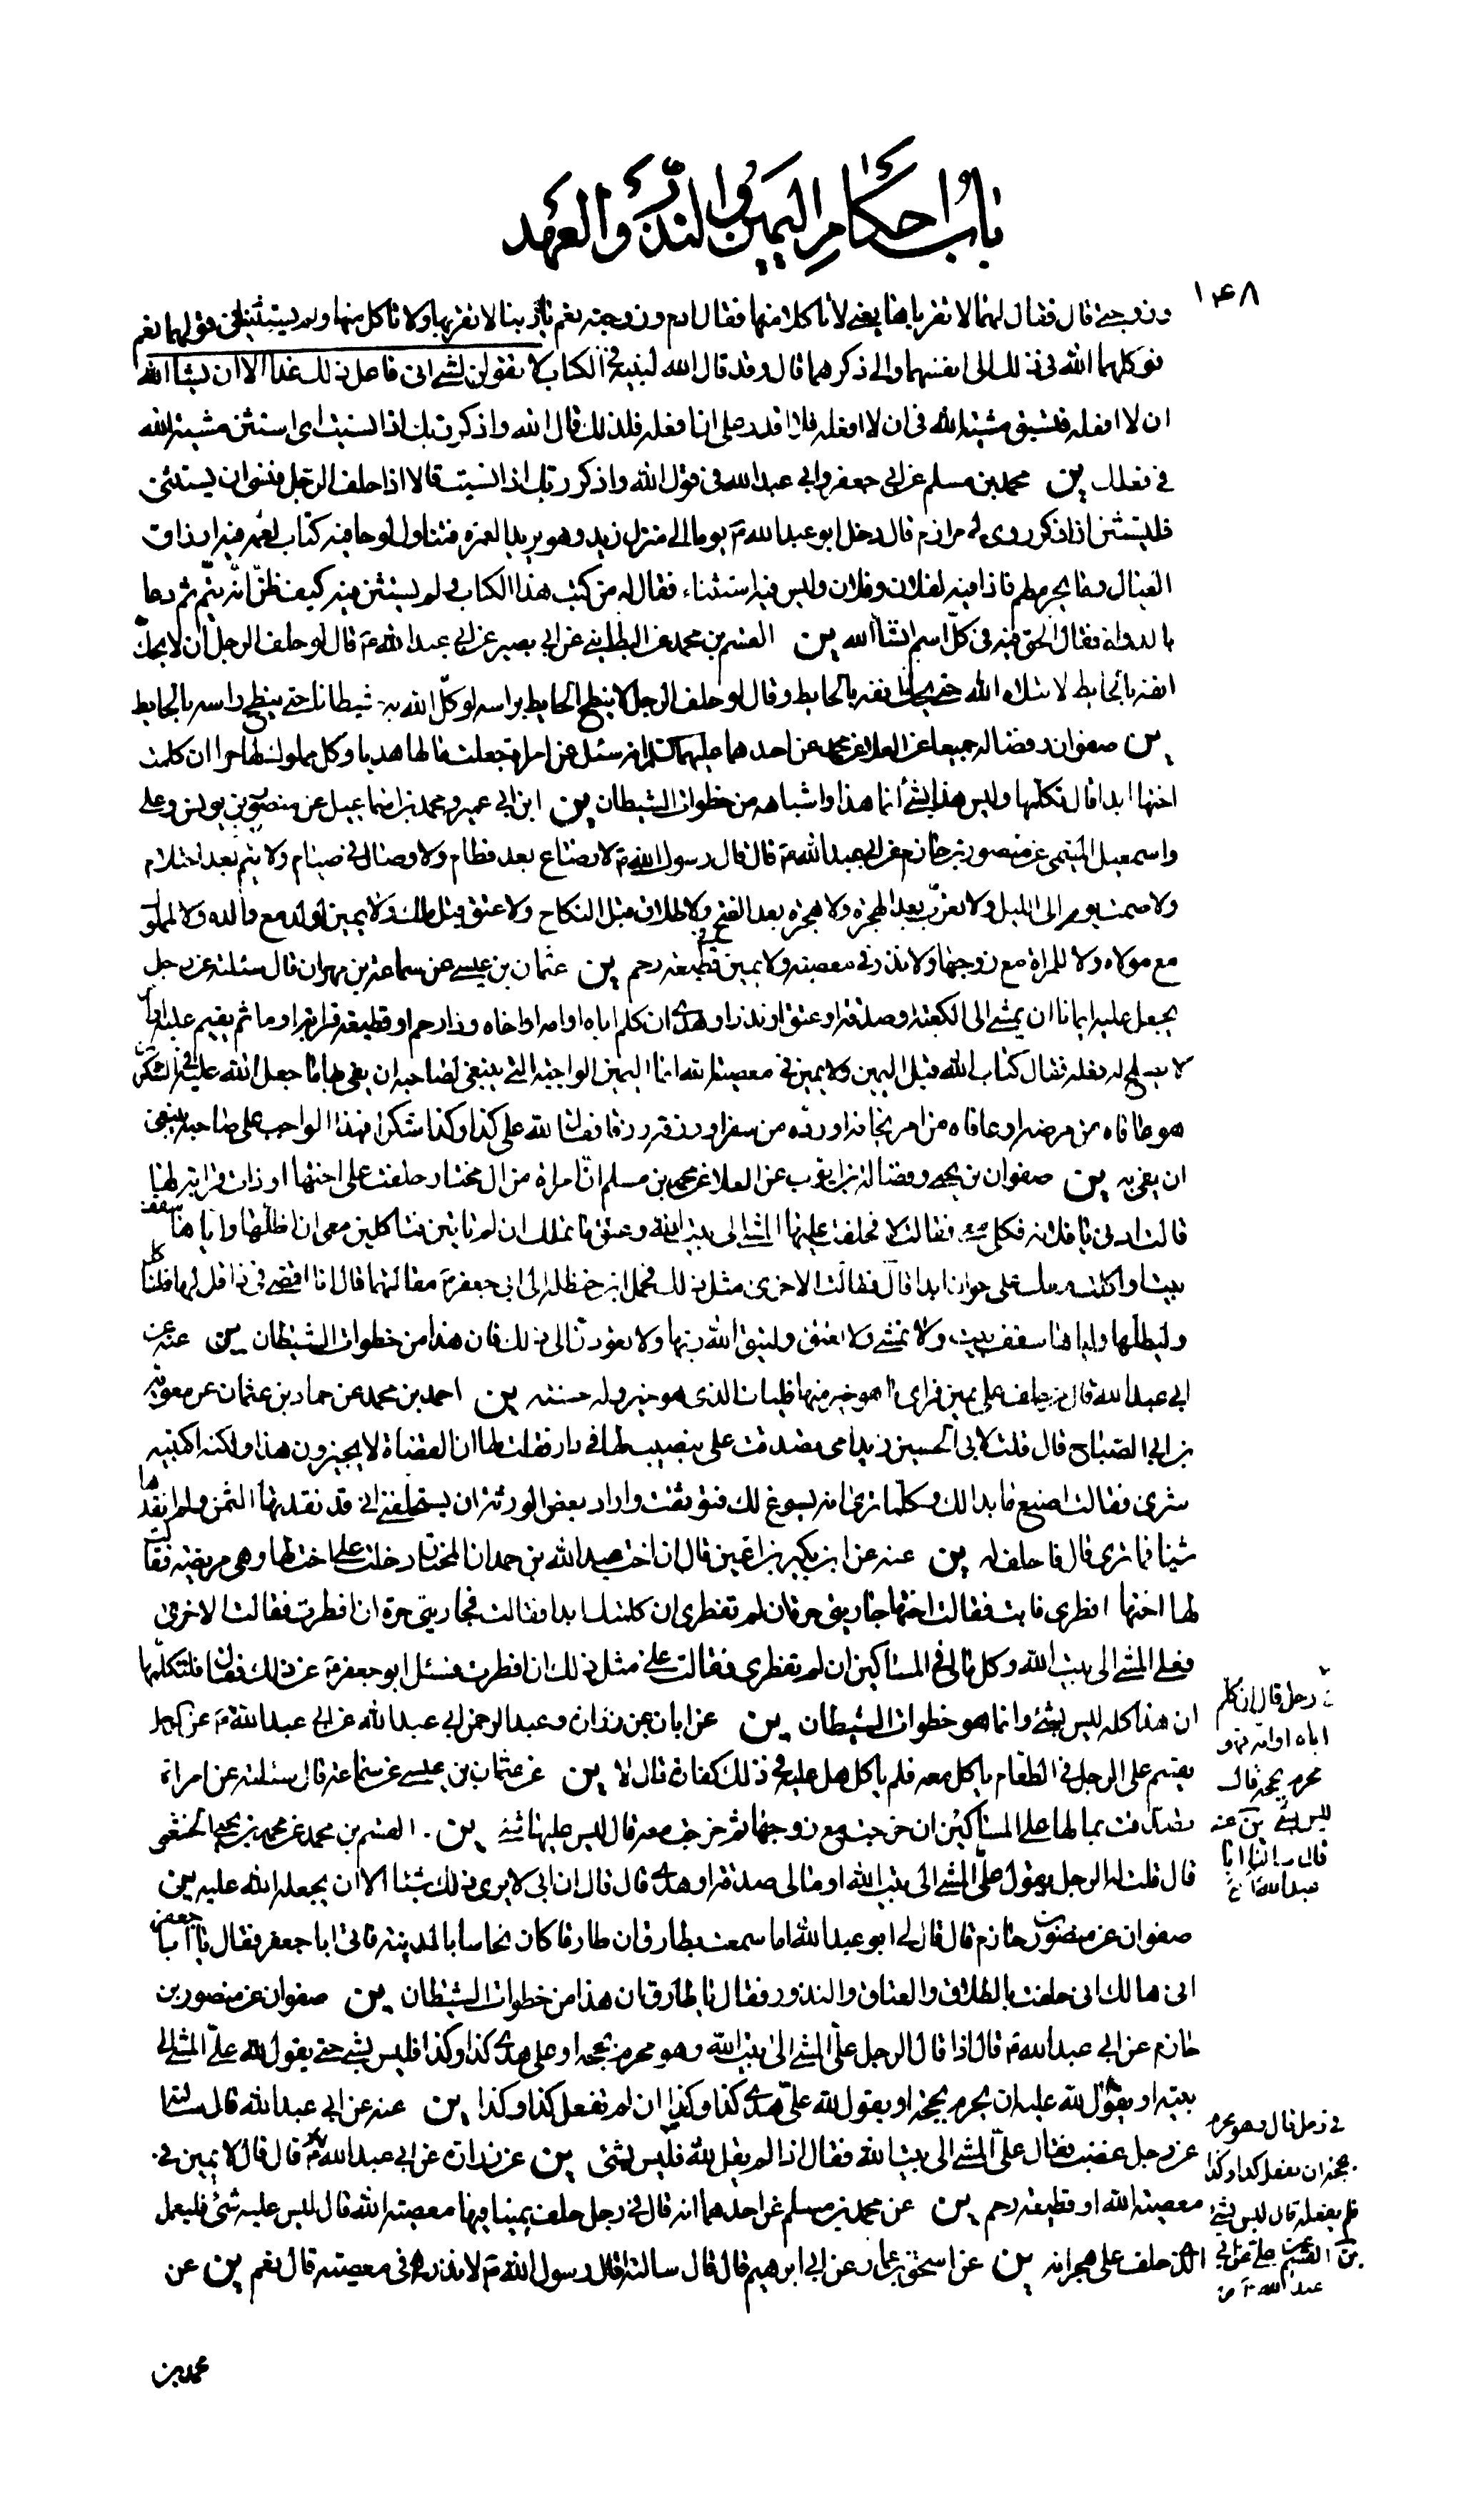 باب احكام اليمين والنذر والعهد
١٤٨
وزوجته قال فقال لهما لا تقرباها يعني لا تاكلا منها فقال ادم وزوجته نعم يا ربنا لا نقربها ولا ناكل منها ولم يستثنيا في قولهما نعم
فوكلهما الله في ذلك الى انفسهما والى ذكرهما قال وقد قال الله لنبيه في الكتاب لا تقولن لشئ انى فاعل ذلك غدا الا ان يشاء الله
ان لا افعله فتسبق مشية الله في ان لا افعله فلا اقدر على ان افعله فلذلك قال الله واذكر ربك اذا نسيت اى استثن مشية الله
في فعلك ين محمد بن مسلم عن ابي جعفر وابي عبد الله في قول الله واذكر ربك اذا نسيت قالا اذا حلف الرجل فنسى ان يستثنى
فليستثن اذا ذكر روى لى مرازم قال دخل ابو عبد الله ع يوما الى منزل زيد وهو يريد العمرة فتناول لوحا فيه كتاب لعمه فيه ارزاق
العيال وما يجرى لهم فاذا فيه لفلان وفلان وليس فيه استثناء فقال له من كتب هذا الكتاب ولم يستثن فيه كيف ظن انه يتم ثم دعا
بالدواة فقال الحق فيه في كل اسم انشاء الله ين القسم بن محمد عن البطايني عن ابي بصير عن ابي عبد الله ع قال لو حلف الرجل ان لا يحك
انفه بالحايط لابتلاه الله حتى يحك انفه بالحايط وقال لو حلف الرجل لا ينطح الحايط براسه لوكل الله به شيطانا حتى ينطح راسه بالحايط
ين صفوان وفضاله جميعا عن العلا عن محمد عن احدهما عليهما السلام انه سئل عن امراة جعلت مالها هديا وكل مملوك لها حرا ان كلمت
اختها ابدا قال تكلمها وليس هذا بشئ انما هذا واشباهه من خطوات الشيطان ين ابن ابي عمير ومحمد بن اسماعيل عن منصور بن يونس وعلى
واسمعيل الميثمى عن منصور بن حازم عن ابي عبد الله ع قال قال رسول الله ص لا رضاع بعد فطام ولا وصال في صيام ولا يتم بعد احتلام
ولا صمت يوم الى الليل ولا تعرب بعد الهجرة ولا هجرة بعد الفتح ولا طلاق قبل النكاح ولا عتق قبل ملك ولا يمين لولد مع والده ولا لمملوك
مع مولاه ولا للمراة مع زوجها ولا نذر في معصية ولا يمين في قطيعة رحم ين عثمان بن عيسى عن سماعة بن مهران قال سئلته عن رجل
يجعل عليه ايمانا ان يمشى الى الكعبة او صدقة او عتق او نذر او هدى ان كلم اباه او امه او اخاه او ذا رحم او قطيعة قرابة او ماثم يقيم عليه او امر
لا يصلح له فعله فقال كتاب الله قبل اليمين ولا يمين في معصية الله انما اليمين الواجبة التي ينبغي لصاحبها ان يفى بها ما جعل الله عليه في الشكر ان
هو عافاه من مرضه او عافاه من امر يخافه او رده من سفر او رزقه رزقا فقال لله على كذا وكذا شكرا فهذا الواجب على صاحبه ينبغى
ان يفى به ين صفوان بن يحيى وفضالة بن ايوب عن العلا عن محمد بن مسلم ان امراة من ال مختار حلفت على اختها او ذات قرابة لها
قالت ادنى يا فلانه فكلى معى فقالت لا فحلفت عليها المشى الى بيت الله وعتق ما تملك ان لم تاتين فتاكلين معى ان اظلها واياها سقف
بيت او اكلت معك على خوان ابدا قال فقالت الاخرى مثل ذلك فحمل ابن حنظلة الى ابي جعفر ع مقالتهما قال انا اقضى في ذا قل لها فلتاكل
وليظلها واياها سقف بيت ولا تمشى ولا تعتق وليتق الله ربها ولا تعودن الى ذلك فان هذا من خطوات الشيطان ين عنه عن
ابي عبد الله قال من حلف على يمين فراى ما هو خير منها فليات الذى هو خير وله حسنة ين احمد بن محمد عن حماد بن عثمان عن معوية
بن ابي الصباح قال قلت لابي الحسين زيد امى تصدقت على بنصيب لها في دار فقلت لها ان القضاة لا يجيزون هذا ولكنه اكتبيه
شرى فقالت اصنع ما بدا لك وكلما ترى انه يسوغ لك فتوثقت واراد بعض الورثة ان يستحلفنى انى قد نقدتها الثمن ولم انقدها
شيئا فما ترى قال فاحلف له ين عنه عن ابن بكير بن اعين قال ان اخت عبد الله بن حمدان المختار دخلت على اخت لها وهي مريضة فقالت
لها اختها افطرى فابت فقالت اختها جاريتى حرة ان لم تفطرى ان كلمتك ابدا فقالت فجاريتى حرة ان افطرت فقالت الاخرى
فعلى المشى الى بيت الله وكل مالى في المساكين ان لم تفطرى فقالت على مثل ذلك ان افطرت فسئل ابو جعفر ع عن ذلك فقال فلتكلمها
ان هذا كله ليس بشئ وانما هو خطوات الشيطان ين عن ابان عن زرارة وعبد الرحمن ابي عبد الله عن ابي عبد الله ع عن الرجل
يقسم على الرجل في الطعام ياكل معه فلم ياكل هل عليه في ذلك كفارة قال لا ين عن عثمان بن عيسى عن سماعة قال سئلته عن امراة
تصدقت بمالها على المساكين ان خرجت مع زوجها ثم خرجت معه قال ليس عليها شئ ين القسم بن محمد عن محمد بن يحيى الخثعمى
قال قلت له الرجل يقول على المشى الى بيت الله او مالى صدقة او هدى قال قال ان ابي لا يرى ذلك شيئا الا ان يجعله الله عليه ين
صفوان عن منصور بن حازم قال قال لي ابو عبد الله اما سمعت بطارق ان طارقا كان نخاسا بالمدينة فاتى ابا جعفر فقال يا ابا جعفر
انى هالك انى حلفت بالطلاق والعتاق والنذور فقال يا طارق ان هذا من خطوات الشيطان ين صفوان عن منصور بن
حازم عن ابي عبد الله ع قال اذا قال الرجل على المشى الى بيت الله وهو محرم بحجة او على هدى كذا وكذا فليس بشئ حتى يقول لله على المشى الى
بيته او يقول لله عليه ان يحرم بحجة او يقول لله على هدى كذا وكذا ان لم نفعل كذا وكذا ين عنه عن ابي عبد الله قال سالته
عن رجل غضب فقال على المشى الى بيت الله فقال اذا لم يقل لله فليس بشئ ين عن زرارة عن ابي عبد الله ع قال قال لا يمين في
معصية الله او قطيعة رحم ين عن محمد بن مسلم عن احدهما انه قال في رجل حلف يمينا فيها معصية الله قال ليس عليه شئ فليعمل
الذى حلف على هجرانه ين عن اسحق بن عمار عن ابي ابرهيم قال قال سالته اقال رسول الله ص لا نذر في معصية قال نعم ين عن
رجل قال ان كلم
اباه او امه فهو
محرم بحجة قال
ليس بشئ ين عنه
قال سالنا ابا
عبد الله ع
في رجل قال وهو محرم
بحجة ان يفعل كذا وكذا
فلم يفعله قال ليس بشئ
عبد الله ع
محمد بن